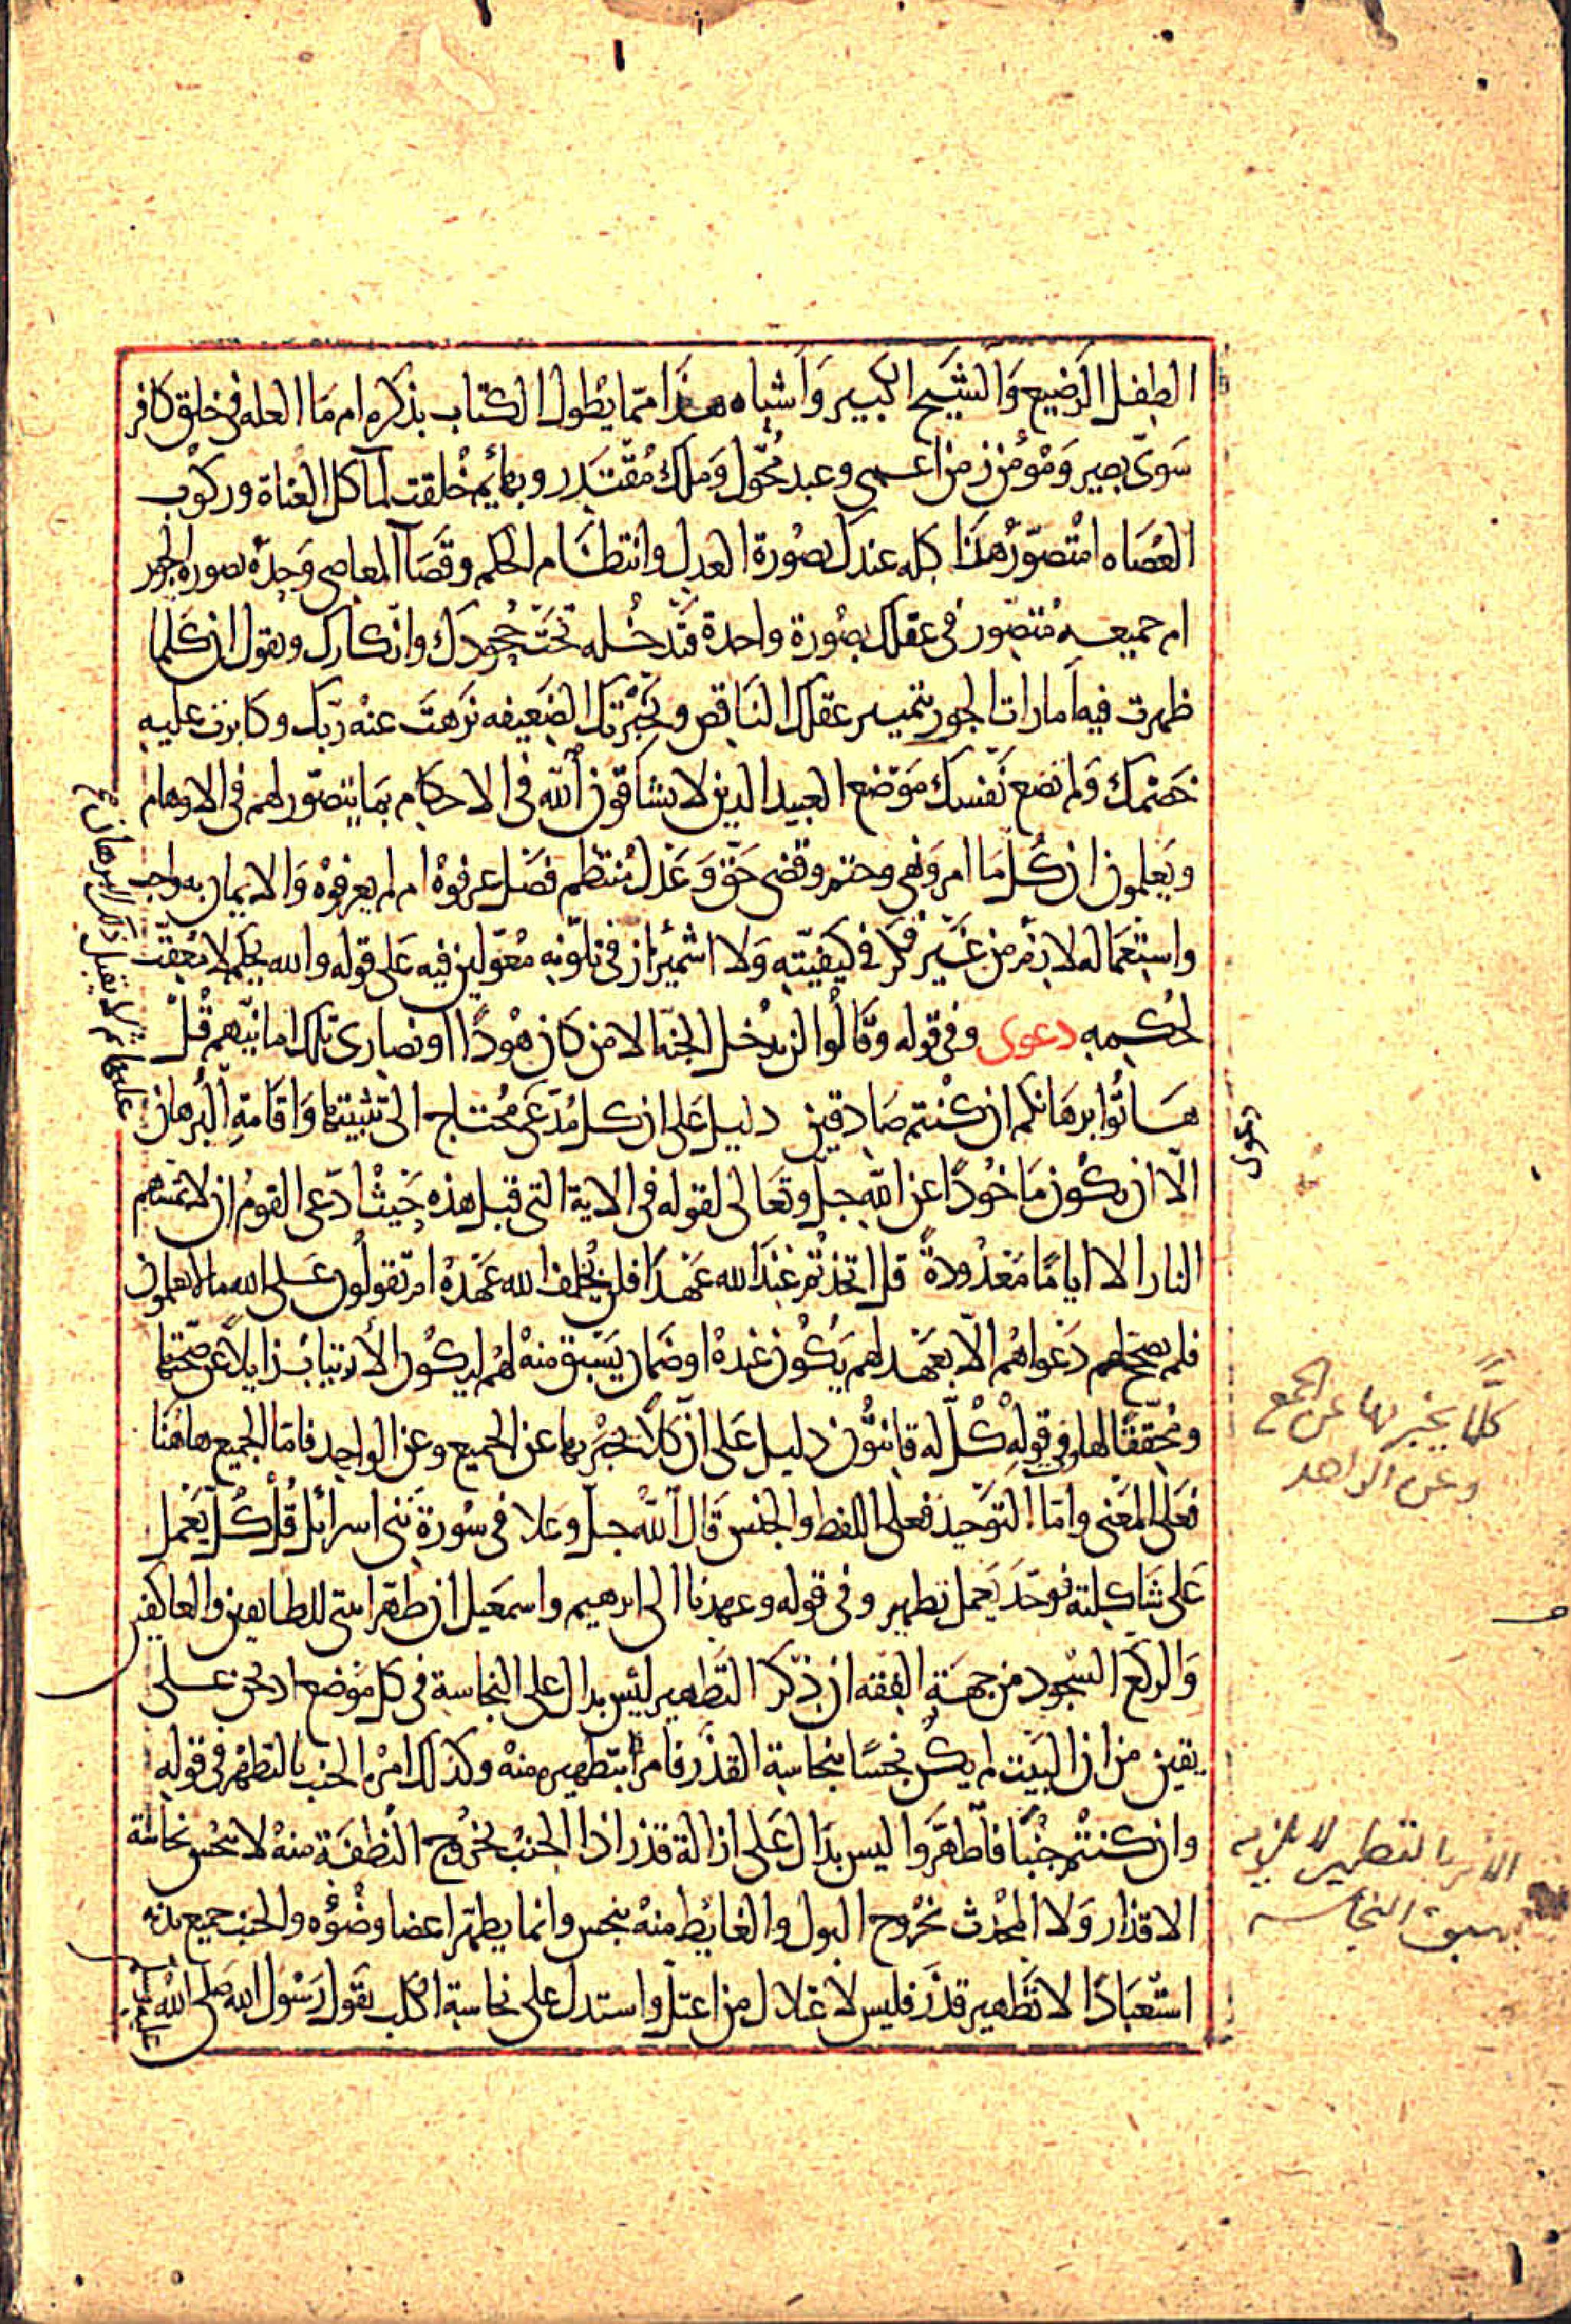 الطفل الرضيع والشيخ الكبير وأشباه هذا مما يطول الكتاب بذكره ام ما العله في خلق كافر
سوي بصير ومؤمن زمن اعمى وعبد مخول وملك مقتدر وبهائم خلقت لمآكل العناة وركوب
العصاه امتصور هذا كله عندك بصورة العدل وانتظام الحكم وقضآ المعاصي وحده بصورة الجور
ام جميعه متصور في عقلك بصورة واحدة فتدخله تحت جحودك وانكارك وتقول ان كلما
ظهرت فيه أمارات الجور بتمييز عقلك الناقص وتحيزتك الضعيفه نزهت عنه ربك وكابرت عليه
خصمك ولم تضع نفسك موضع العبيد الذين لا يشاقون الله في الاحكام بما يتصور لهم في الاوهام
ويعلمون ان كل ما امر ونهى وحتم وقضى حق وعدل منتظم فضل عرفوه ام لم يعرفوه والايمان به واجب
واستعماله لازم من غير فكر في كيفيته ولا اشمئزاز في تلونه معولين فيه على قوله والله يحكم لا معقب
لحكمه دعوى وفي قوله وقالوا لن يدخل الجنة الا من كان هودا او نصارى تلك امانيهم قل
هاتوا برهانكم ان كنتم صادقين دليل على ان كل مدعى محتاج الى تثبيتها واقامة البرهان
الا ان يكون ماخوذا عن الله جل وتعالى لقوله في الاية التي قبل هذه حيث ادعى القوم ان لا تمسهم
النار الا اياما معدودة قل اتخذتم عند الله عهدا فلن يخلف الله عهده ام تقولون على الله ما لا تعلمون
فلم يصحح لهم دعواهم الا بعهد لهم يكون عنده او ضمان يسبق منه لهم ليكون الارتياب زايلا عن صحتها
ومحققا لها وفي قوله كل له قانتون دليل على ان كلا يخبر بها عن الجميع وعن الواحد فاما الجميع هاهنا
فعلى المعنى واما التوحيد فعلى اللفظ والجنس قال الله جل وعلا في سورة بني اسرائل قل كل يعمل
على شاكلته فوحد يعمل تطهير وفي قوله وعهدنا الى ابرهيم واسمعيل ان طهرا بيتي للطايفين والعاكفين
والركع السجود من جهة الفقه ان ذكر التطهير ليس بدال على النجاسة في كل موضع اذ نحن على
يقين من ان البيت لم يكن نجسا بنجاسة القذر فامرا بتطهيره منه وكذلك امره الجنب بالتطهر في قوله
وان كنتم جنبا فاطهروا ليس بدال على ازالة قذر اذا الجنب بخروج النطفة منه لا ينجس نجاسة
الاقذار ولا المحدث بخروج البول والغايط منه بنجس وانما يطهر اعضا وضوءه والجنب جميع بدنه
استعبادا لا تطهير قذر فليس لاعتلال من اعتل واستدل على نجاسة الكلب بقول رسول الله صلى الله عليه
دعوى
كلًّا يخبر بها عن الجمع
وعن الواحد
الامر بالتطهير لا يلزم
سبق النجاسه